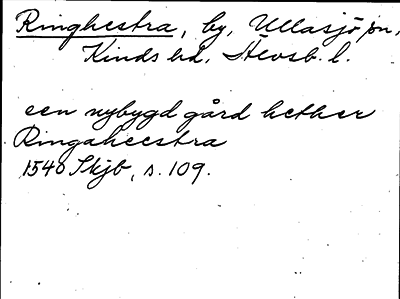 Ringhestra, by, Ullasjö sn,
Kinds hd, Älvsb. l.
een nybygd gård hether
Ringaheestra
1540 Skjb, s. 109.